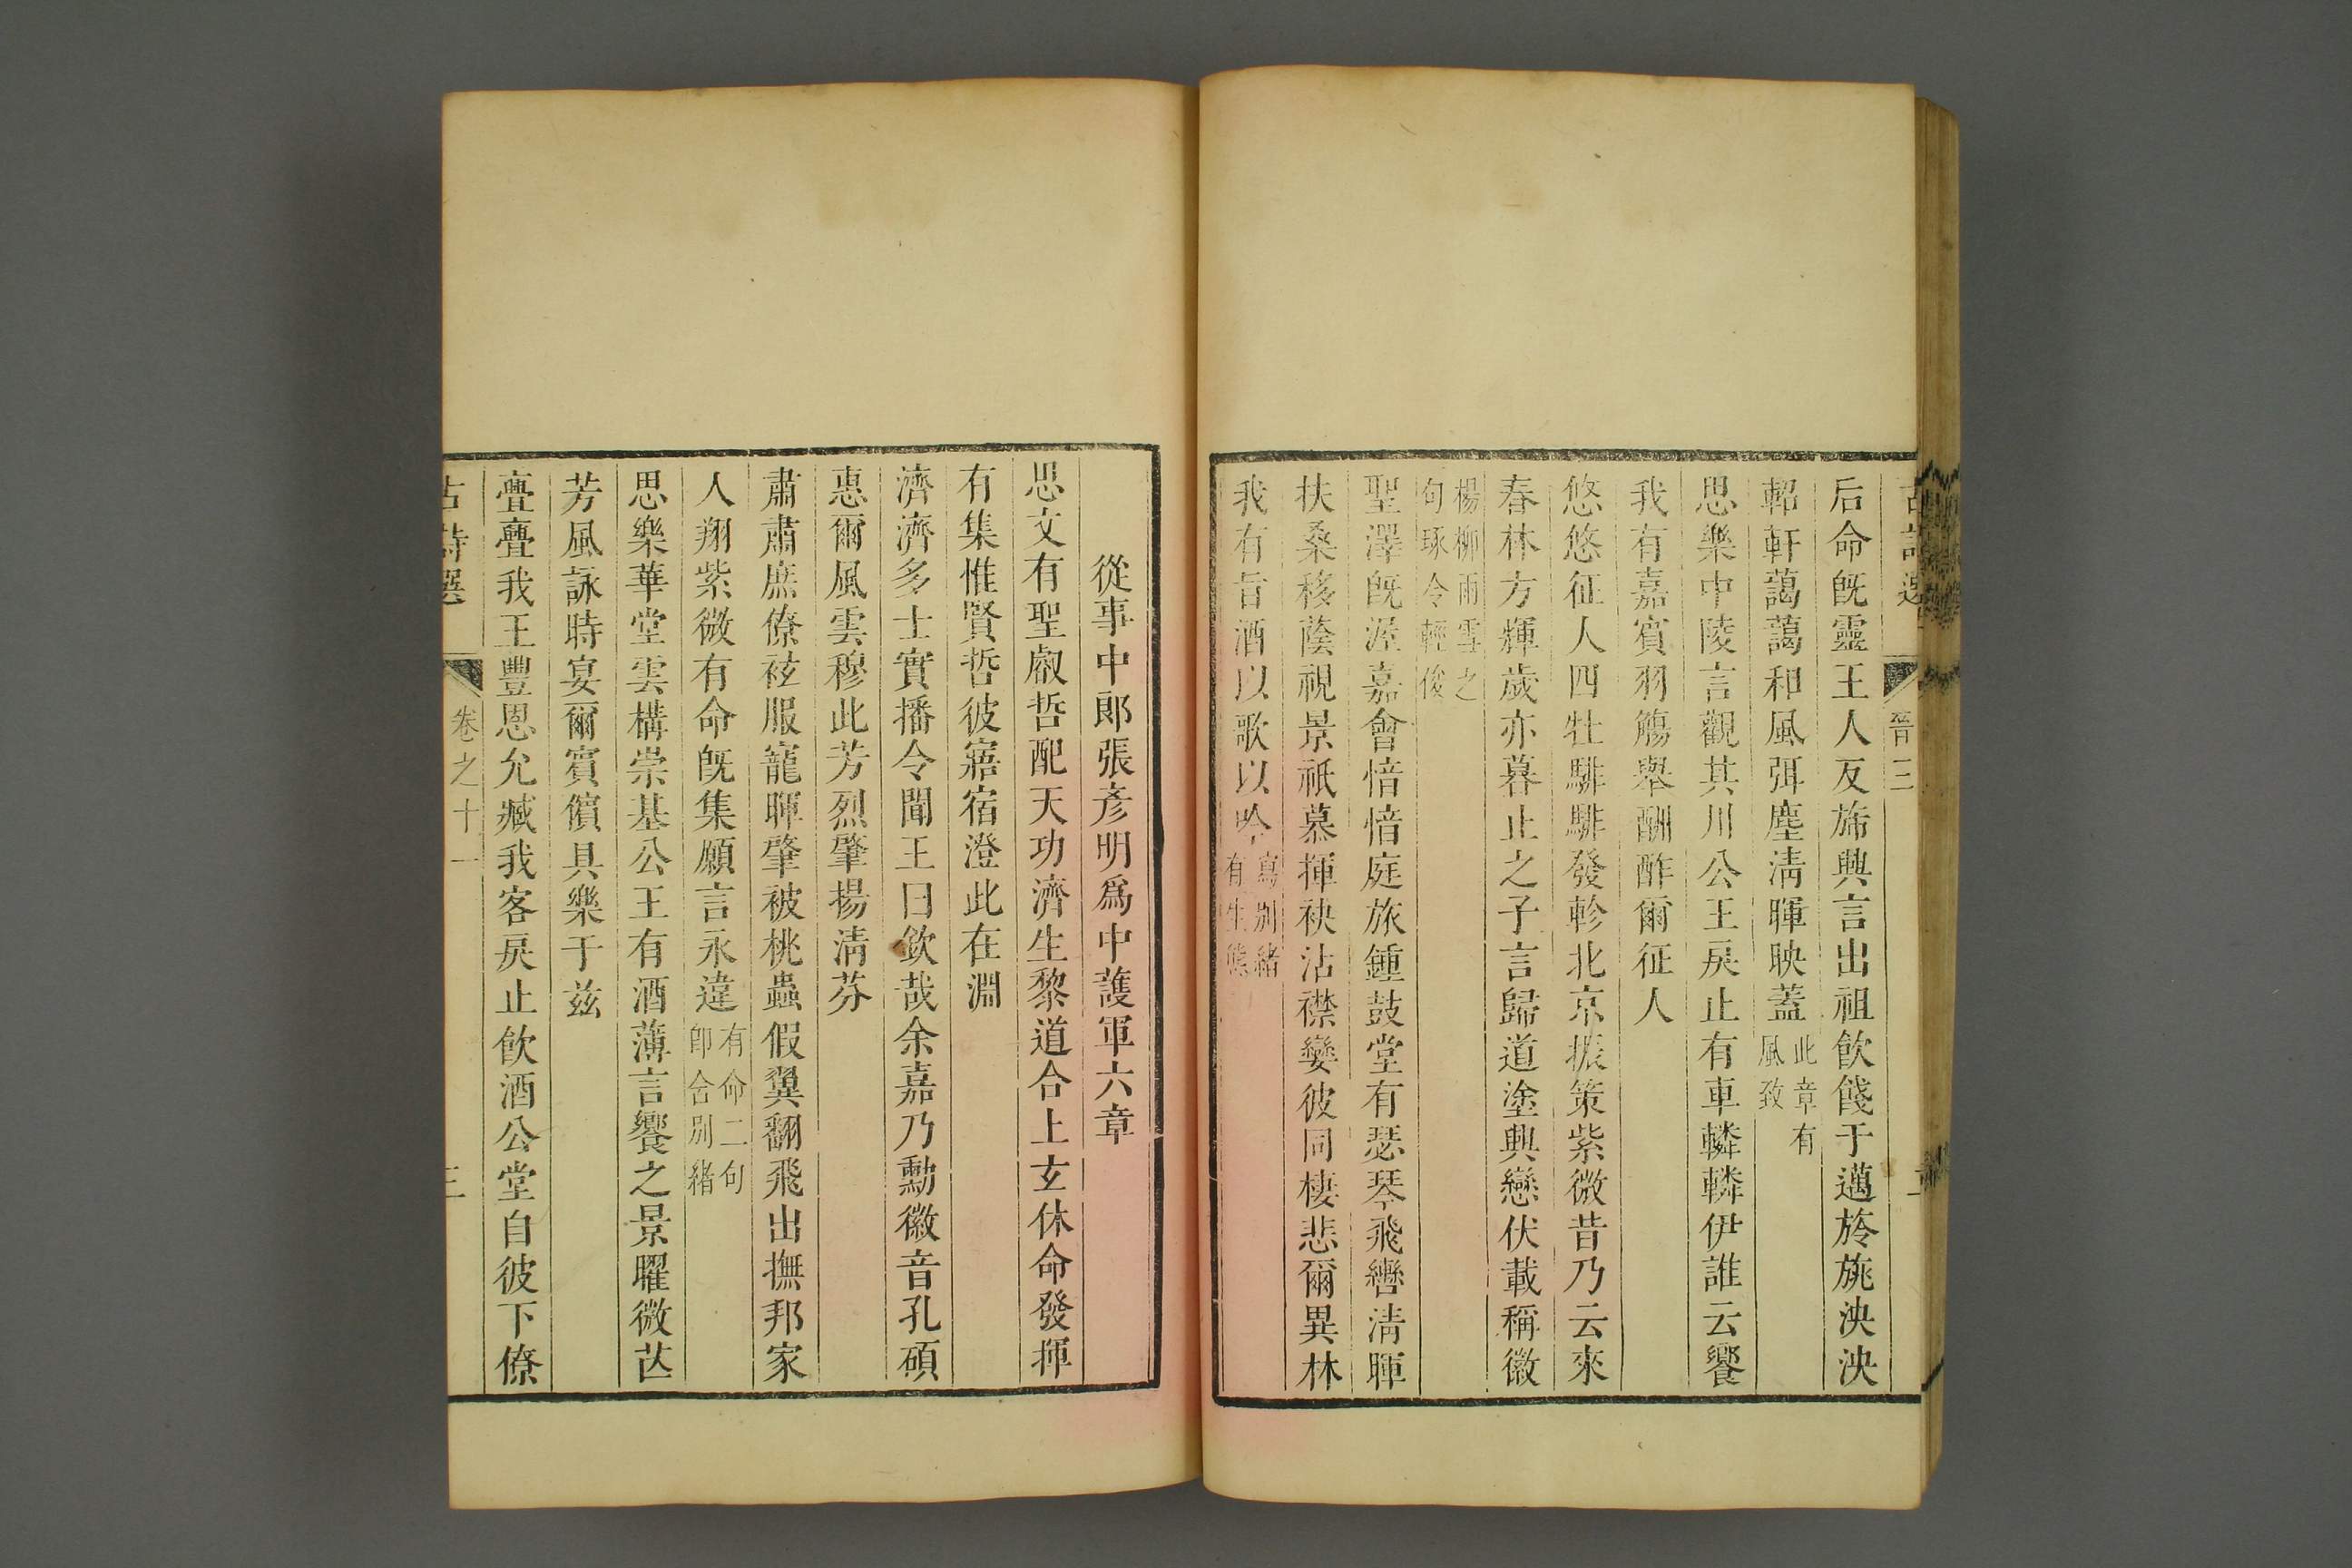 古詩選 晉三
后命旣靈王人反旆興言出祖飲餞于邁旍旐泱泱
軺軒藹藹和風弭塵清暉映蓋此章有風致
思樂中陵言觀其川公王戾止有車轔轔伊誰云饗
我有嘉賓羽觴舉酬酢爾征人
悠悠征人四牡騑騑發軫北京振策紫微昔乃云來
春林方輝歲亦暮止之子言歸道塗興戀伏載稱徽
楊柳雨雪之句琢令輕俊
聖澤旣渥嘉會愔愔庭旅鍾鼓堂有瑟琴飛轡清暉
扶桑移蔭視景祇慕揮袂沾襟孌彼同棲悲爾異林
我有旨酒以歌以吟寫別緒有生態
從事中郎張彥明爲中護軍六章
思文有聖叡哲配天功濟生黎道合上玄休命發揮
有集惟賢哲彼寤宿澄此在淵
濟濟多士實播令聞王曰欽哉余嘉乃勳徽音孔碩
惠爾風雲穆此芳烈肇揚清芬
肅肅庶僚袨服寵暉肇被桃蟲假翼翻飛出撫邦家
人翔紫微有命旣集願言永違有命二句卽含別緒
思樂華堂雲構崇基公王有酒薄言饗之景曜微芒
芳風詠時宴爾賓儐具樂于茲
亹亹我王豐恩允臧我客戾止飲酒公堂自彼下僚
古詩選 卷之十一 三